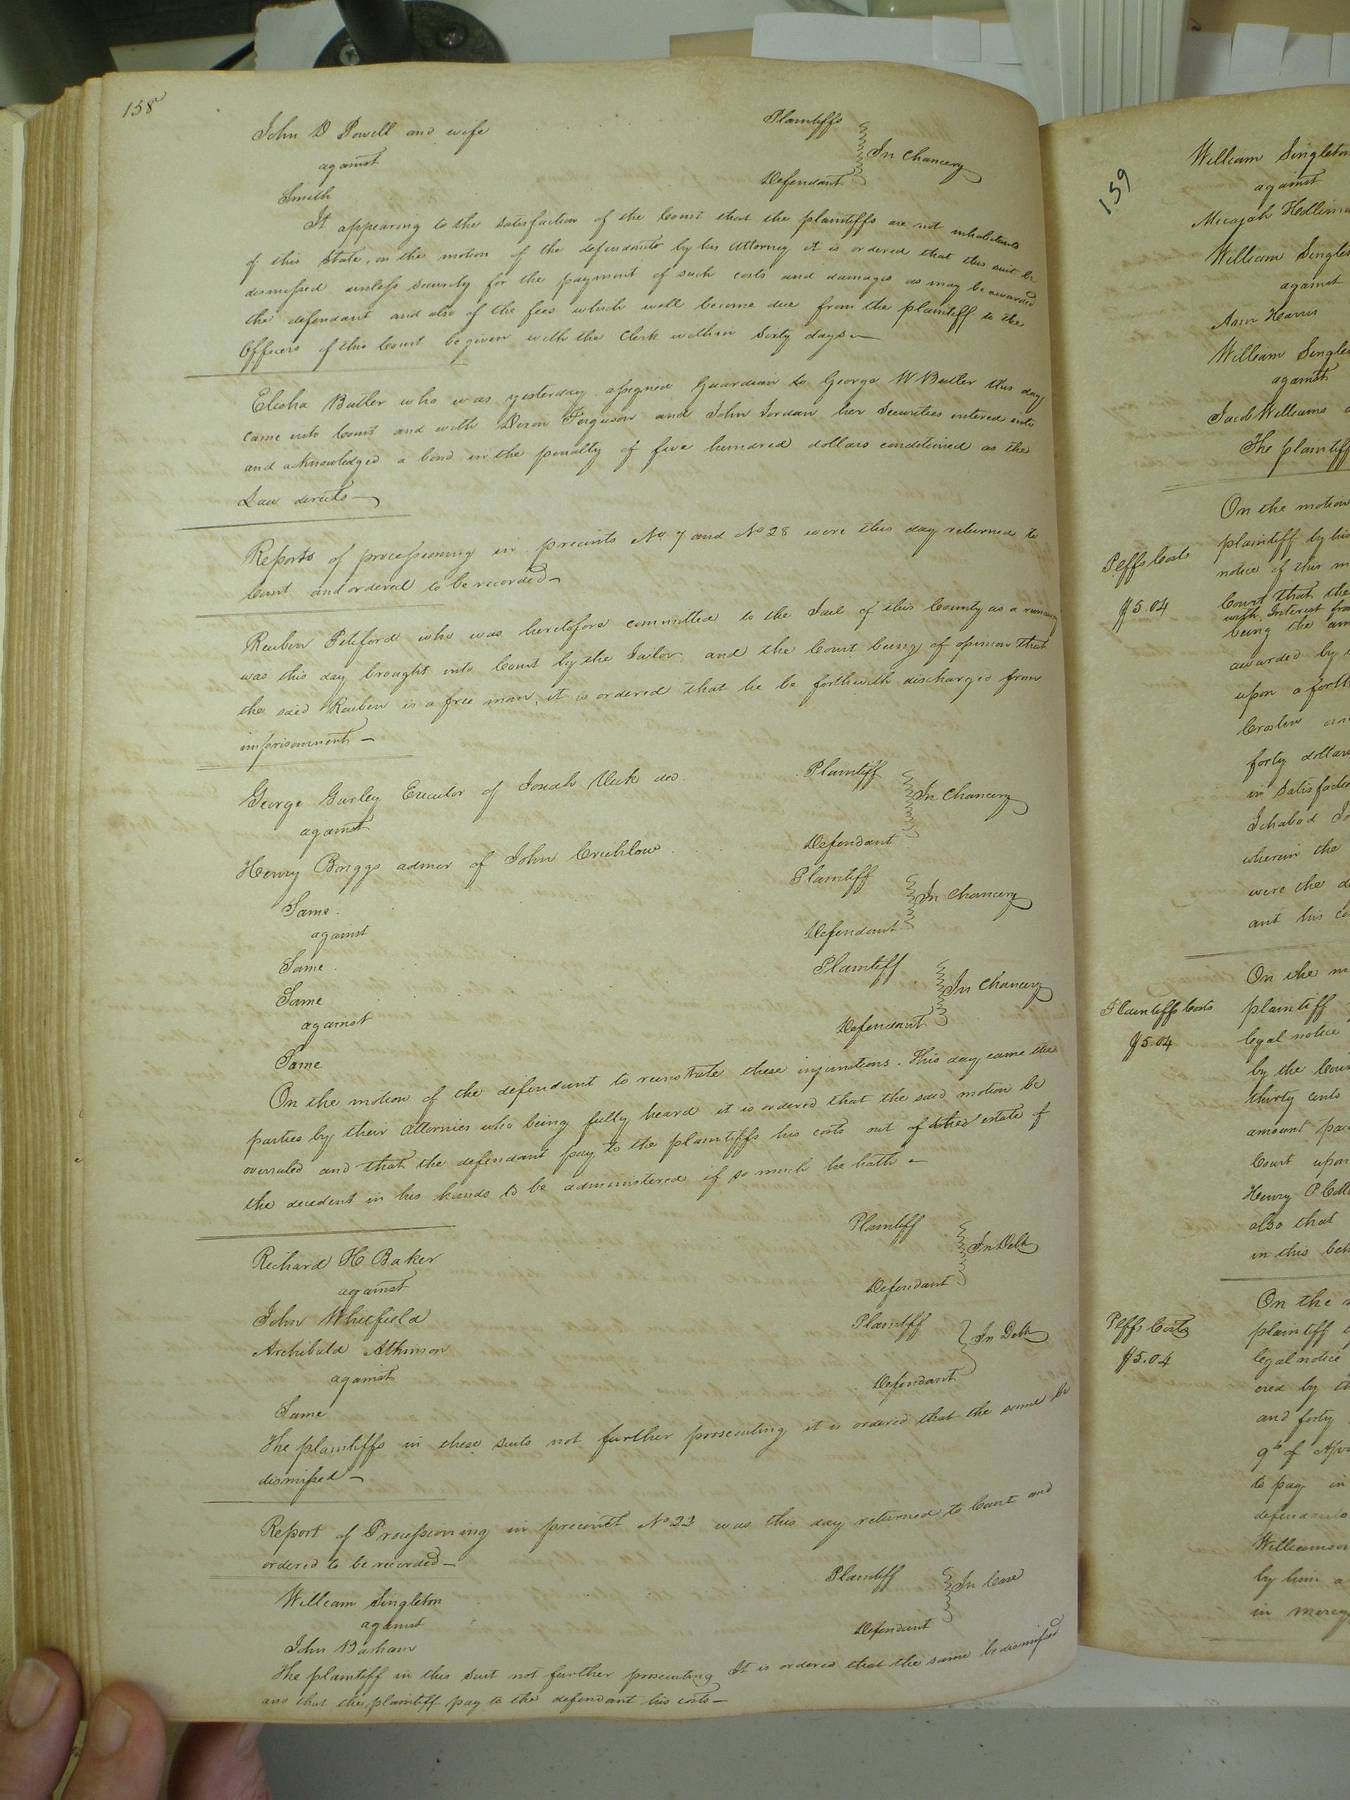 158
John D Powell and wife Plaintiffs
against In Chancery
Smith Defendant
It appearing to the satisfaction of the Court that the plaintiffs are not inhabitants
of this State, on the motion of the defendants by his attorney it is ordered that this suit be
dismissed unless security for the payment of such costs and damages as may be awarded
the defendant and also of the fees which will become due from the plaintiff to the
Officers of this Court be given with the Clerk within Sixty days
Elisha Butler who was yesterday assigned Guardian to George W Butler this day
came into Court and with Dixon Ferguson and John Jordan her Securities entered into
and acknowledged a bond in the penalty of five hundred dollars conditioned as the
Law directs
Reports of processioning in precincts No 7 and No 28 were this day returned to
Court and ordered to be recorded
Reuben Petiford who was heretofore committed to the Jail of this County as a runaway
was this day brought into Court by the Jailor and the Court being of opinion that
the said Reuben is a free man, it is ordered that he be forthwith discharged from
imprisonment
George Gurley Executor of Josiah Vick decd. Plaintiff
against In Chancery
Henry Briggs admor of John Crichlow Defendant
Same Plaintiff
against In Chancery
Same Defendant
Same Plaintiff
against In Chancery
Same Defendant
On the motion of the defendant to reinstate these injunctions. This day came the
parties by their attornies who being fully heard it is ordered that the said motion be
overruled and that the defendant pay to the plaintiffs his costs out of the estate of
the decedent in his hands to be administered if so much he hath
Richard H Baker Plaintiff
against In Debt
John Whitfield Defendant
Archibald Atkinson Plaintiff
against In Debt
Same Defendant
The plaintiffs in these suits not further prosecuting it is ordered that the same be
dismissed
Report of Processioning in precinct No 23 was this day returned to Court and
ordered to be recorded
William Singleton Plaintiff
against In Case
John Barham Defendant
The plaintiff in this Suit not further prosecuting It is ordered that the same be dismissed
and that the plaintiff pay to the defendant his costs
159
William Singleton
against
Micajah
William
against
Aaron Harris
William
against
Jacob Williams
The plaintiff
On the motion
plaintiff by his
notice of this
Plffs Costs
$5.04
Court that the
with Interest from
being the
awarded by
upon a
forty dollars
in
Ichabod
wherein the
were the
ant his
On the
Plaintiffs Costs
$5.04
plaintiff
legal notice
by the
thirty cents
amount
Court upon
Henry P
also that
in this
On the
Plffs Costs
$5.04
plaintiff
legal notice
ered by
and forty
9th of
to pay in
defendants
Williamson
by him
in mercy